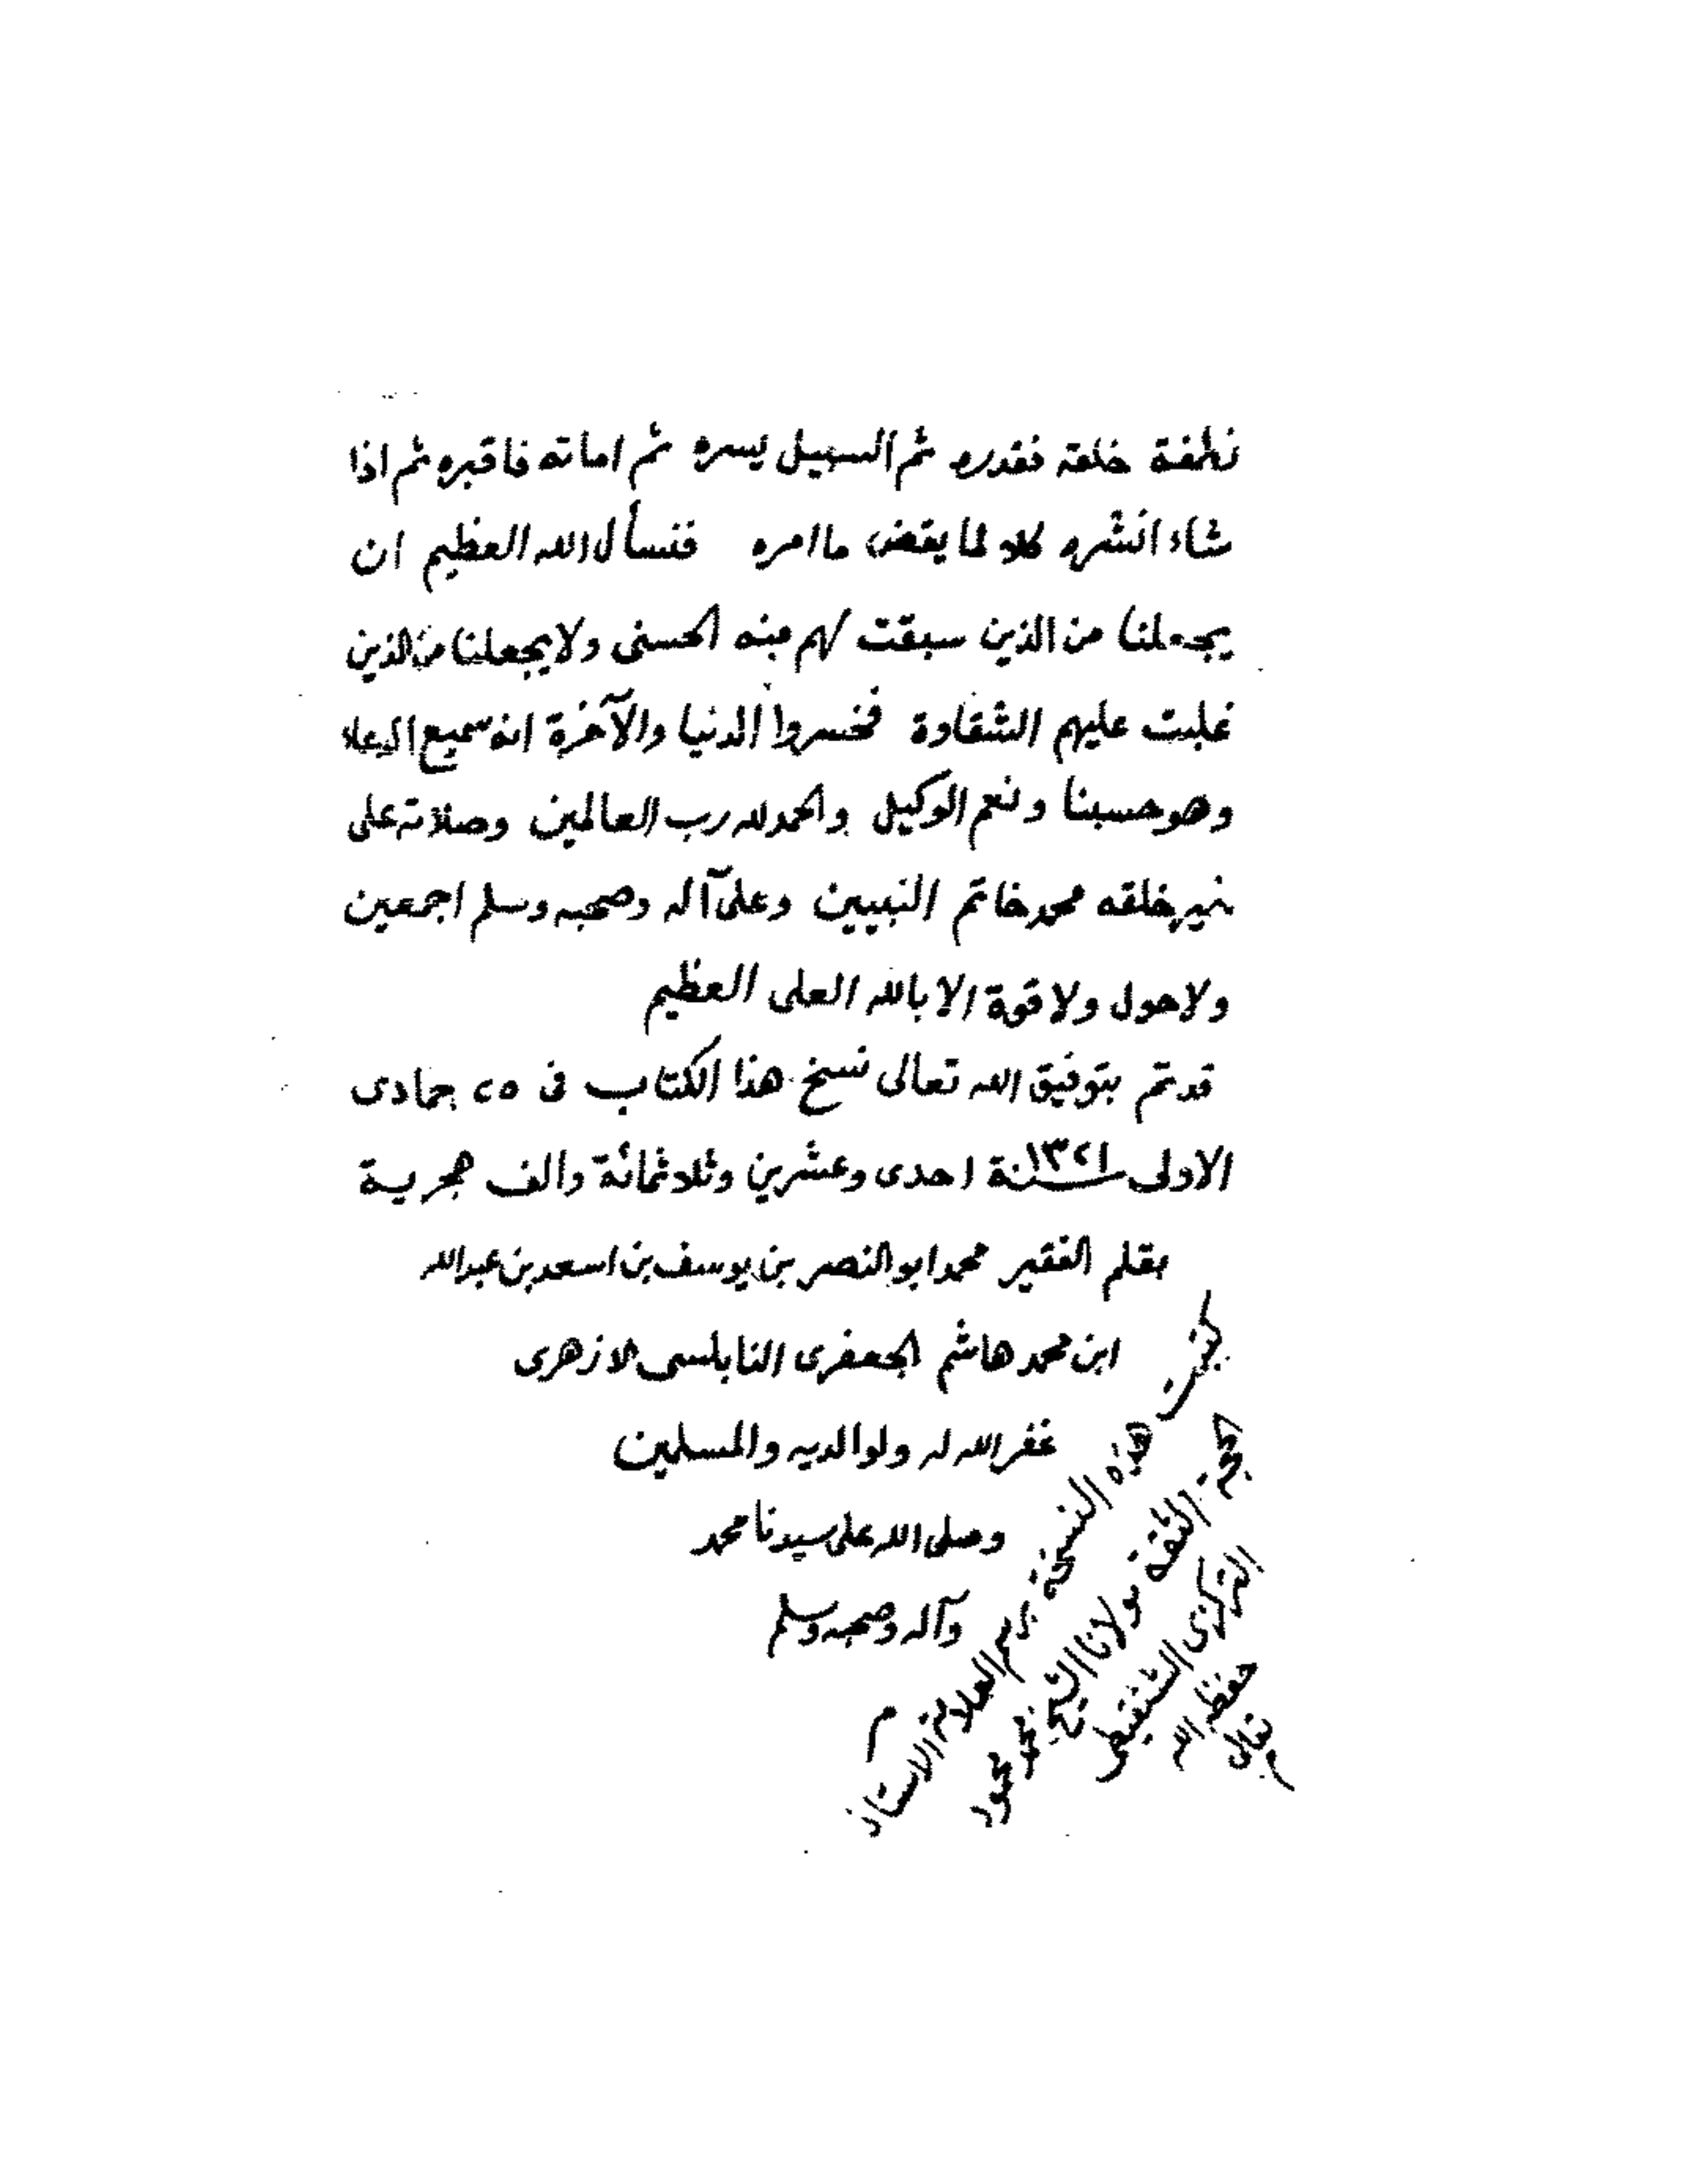 نطفة خلقه فقدره ثم السبيل يسره ثم اماته فاقبره ثم اذا
شاء انشره كلا لما يقض ما امره فنسأل الله العظيم ان
يجعلنا من الذين سبقت لهم منه الحسنى ولا يجعلنا من الذين
غلبت عليهم الشقاوة فخسروا الدنيا والآخرة انه سميع الدعاء
وهو حسبنا ونعم الوكيل والحمد لله رب العالمين وصلاته على
خير خلقه محمد خاتم النبيين وعلى آله وصحبه وسلم اجمعين
ولا حول ولا قوة الا بالله العلى العظيم
قد تم بتوفيق الله تعالى نسخ هذا الكتاب فى ٢٥ جمادى
الاولى سنة ١٣٢١ احدى وعشرين وثلاثمائة والف هجرية
بقلم الفقير محمد ابو النصر بن يوسف بن اسعد بن عبدالله
ابن محمد هاشم الجعفرى النابلسى الازهرى
غفر الله له ولوالديه والمسلمين
وصلى الله على سيدنا محمد
وآله وصحبه وسلم
م
هذه النسخة العلامة الاستاذ
الحجة الثقة مولانا الشيخ محمد محمود
التركزى الشنقيطى
حفظه الله
تعالى